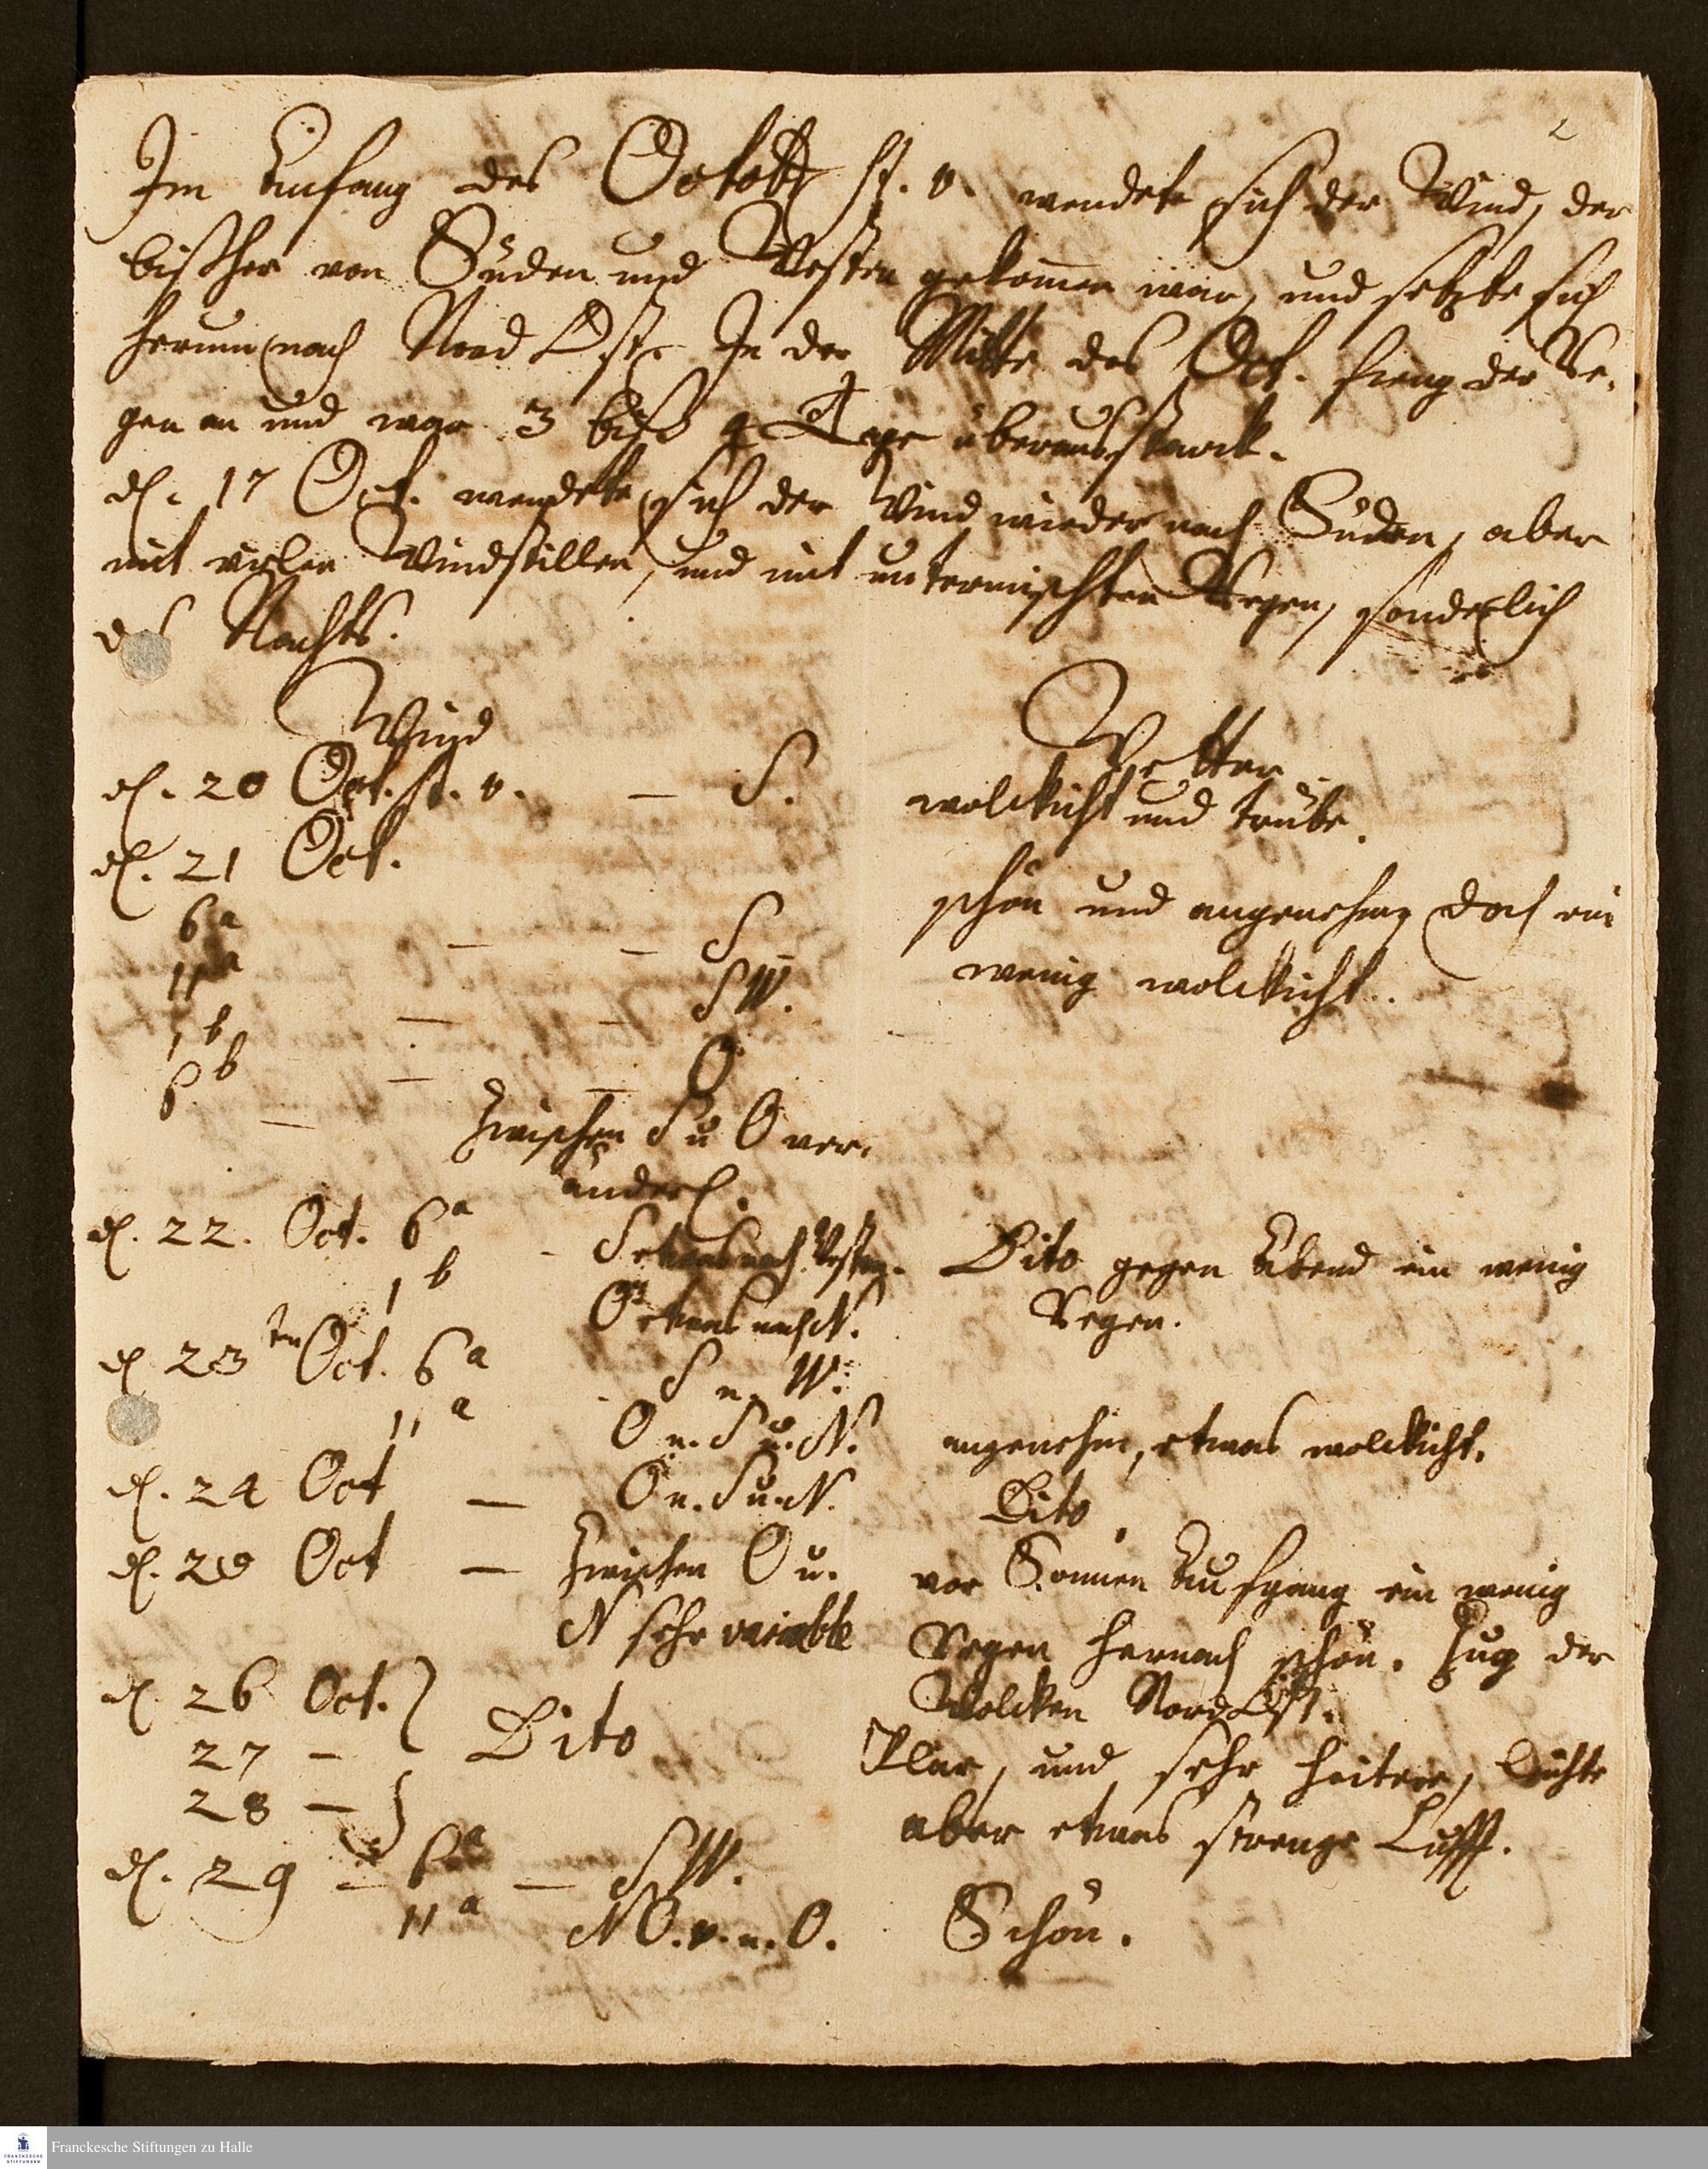 2
Im Anfang des Octobr st. v. wendete sich der Wind, der
bißher von Süden und Westen gekom̅en war, und setzte sich
herum nach Nord Ost. In der Mitte des Oct. fieng der Re-
gen an und war 3 biß 4 Tage überaus starck.
d. 17 Oct. wendete sich der Wind wieder nach Süden, aber
mit vielen Windstillen, und mit untermischten Regen, sonderlich
des Nachts.
Wind
Wetter
d. 20 Oct. st. v. — S.
wolckicht und trübe.
d. 21 Oct.
6 a — — S
schön und angenehm, doch ein
11 a — — SW.
wenig wolckicht.
1 b — — O
6 b — Zwischen S u O ver-
änderl.
d. 22. Oct. 6 a - S etwas nach Westen.
Dito gegen Abend ein wenig
1 b O etwas nach N.
Regen.
d 23 ten Oct. 6 a - S u. W.
11 a O u. S u. N.
angenehm, etwas wolckicht.
d. 24 Oct — O u. S u. N.
Dito.
d. 25 Oct — Zwischen O u.
vor Sonnen Aufgang ein wenig
N sehr variable
Regen hernach schön. Zug der
Wolcken Nord Ost.
d. 26 Oct.
27 — Dito
Klar, und sehr heitere, leichte
28 —
aber etwas strenge Lufft.
d. 29 — 6 a — SW.
11 a NO. v. u. O.
Schön.
Franckesche Stiftungen zu Halle
FRANCKESCHE
STIFTUNGEN